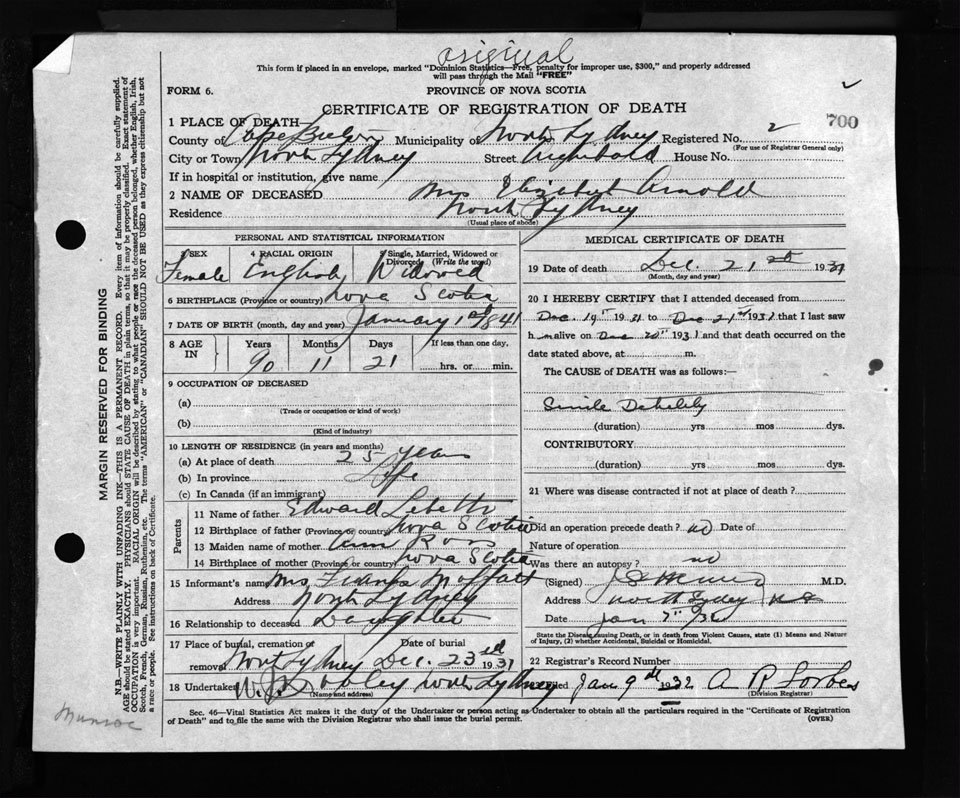 original
This form if placed in an envelope, marked "Dominion Statistics—Free, penalty for improper use, $300," and properly addressed
will pass through the Mail "FREE"
FORM 6.
PROVINCE OF NOVA SCOTIA
CERTIFICATE OF REGISTRATION OF DEATH
700
1 PLACE OF DEATH—
County of Cape Breton Municipality of North Sydney Registered No. 2
(For use of Registrar General only)
City or Town North Sydney Street Archibald House No.
If in hospital or institution, give name
2 NAME OF DECEASED Mrs Elizabeth Arnold
Residence North Sydney
(Usual place of abode)
PERSONAL AND STATISTICAL INFORMATION
3 SEX 4 RACIAL ORIGIN 5 Single, Married, Widowed or Divorced (Write the word)
Female English Widowed
6 BIRTHPLACE (Province or country) Nova Scotia
7 DATE OF BIRTH (month, day and year) January 1st 1841
8 AGE IN Years Months Days If less than one day,
90 11 21 hrs. or min.
9 OCCUPATION OF DECEASED
(a)
(Trade or occupation or kind of work)
(b)
(Kind of industry)
10 LENGTH OF RESIDENCE (in years and months)
(a) At place of death 25 years
(b) In province Life
(c) In Canada (if an immigrant)
Parents
11 Name of father Edward
12 Birthplace of father (Province or country) Nova Scotia
13 Maiden name of mother Ann Ross
14 Birthplace of mother (Province or country) Nova Scotia
15 Informant's name Mrs Moffatt
Address North Sydney
16 Relationship to deceased Daughter
17 Place of burial, cremation or removal North Sydney Date of burial Dec. 23rd 1931
18 Undertaker North Sydney
(Name and address)
MEDICAL CERTIFICATE OF DEATH
19 Date of death Dec 21st 1931
(Month, day and year)
20 I HEREBY CERTIFY that I attended deceased from
Dec 19th 1931 to Dec 21st 1931 that I last saw
h m alive on Dec 20th 1931 and that death occurred on the
date stated above, at m.
The CAUSE of DEATH was as follows:—
Senile Debility
(duration) yrs mos dys.
CONTRIBUTORY
(duration) yrs mos dys.
21 Where was disease contracted if not at place of death?
Did an operation precede death? no Date of
Nature of operation
Was there an autopsy? no
(Signed) M.D.
Address North Sydney N S
Date Jan 7th/32
State the Disease causing Death, or in death from Violent Causes, state (1) Means and Nature
of Injury, (2) whether Accidental, Suicidal or Homicidal.
22 Registrar's Record Number
Filed Jan 9th 1932 A R Forbes
(Division Registrar)
Sec. 46—Vital Statistics Act makes it the duty of the Undertaker or person acting as Undertaker to obtain all the particulars required in the "Certificate of Registration
of Death" and to file the same with the Division Registrar who shall issue the burial permit.
(OVER)
MARGIN RESERVED FOR BINDING
N.B.—WRITE PLAINLY WITH UNFADING INK—THIS IS A PERMANENT RECORD. Every item of information should be carefully supplied.
AGE should be stated EXACTLY. PHYSICIANS should STATE CAUSE OF DEATH in plain terms, so that it may be properly classified. Exact statement of
OCCUPATION is very important. RACIAL ORIGIN will be described by stating to what people or race the deceased person belonged, whether English, Irish,
Scotch, French, German, Russian, Ruthenian, etc. The terms "AMERICAN" or "CANADIAN" SHOULD NOT BE USED as they express citizenship but not
a race or people. See instructions on back of Certificate.
Munroe